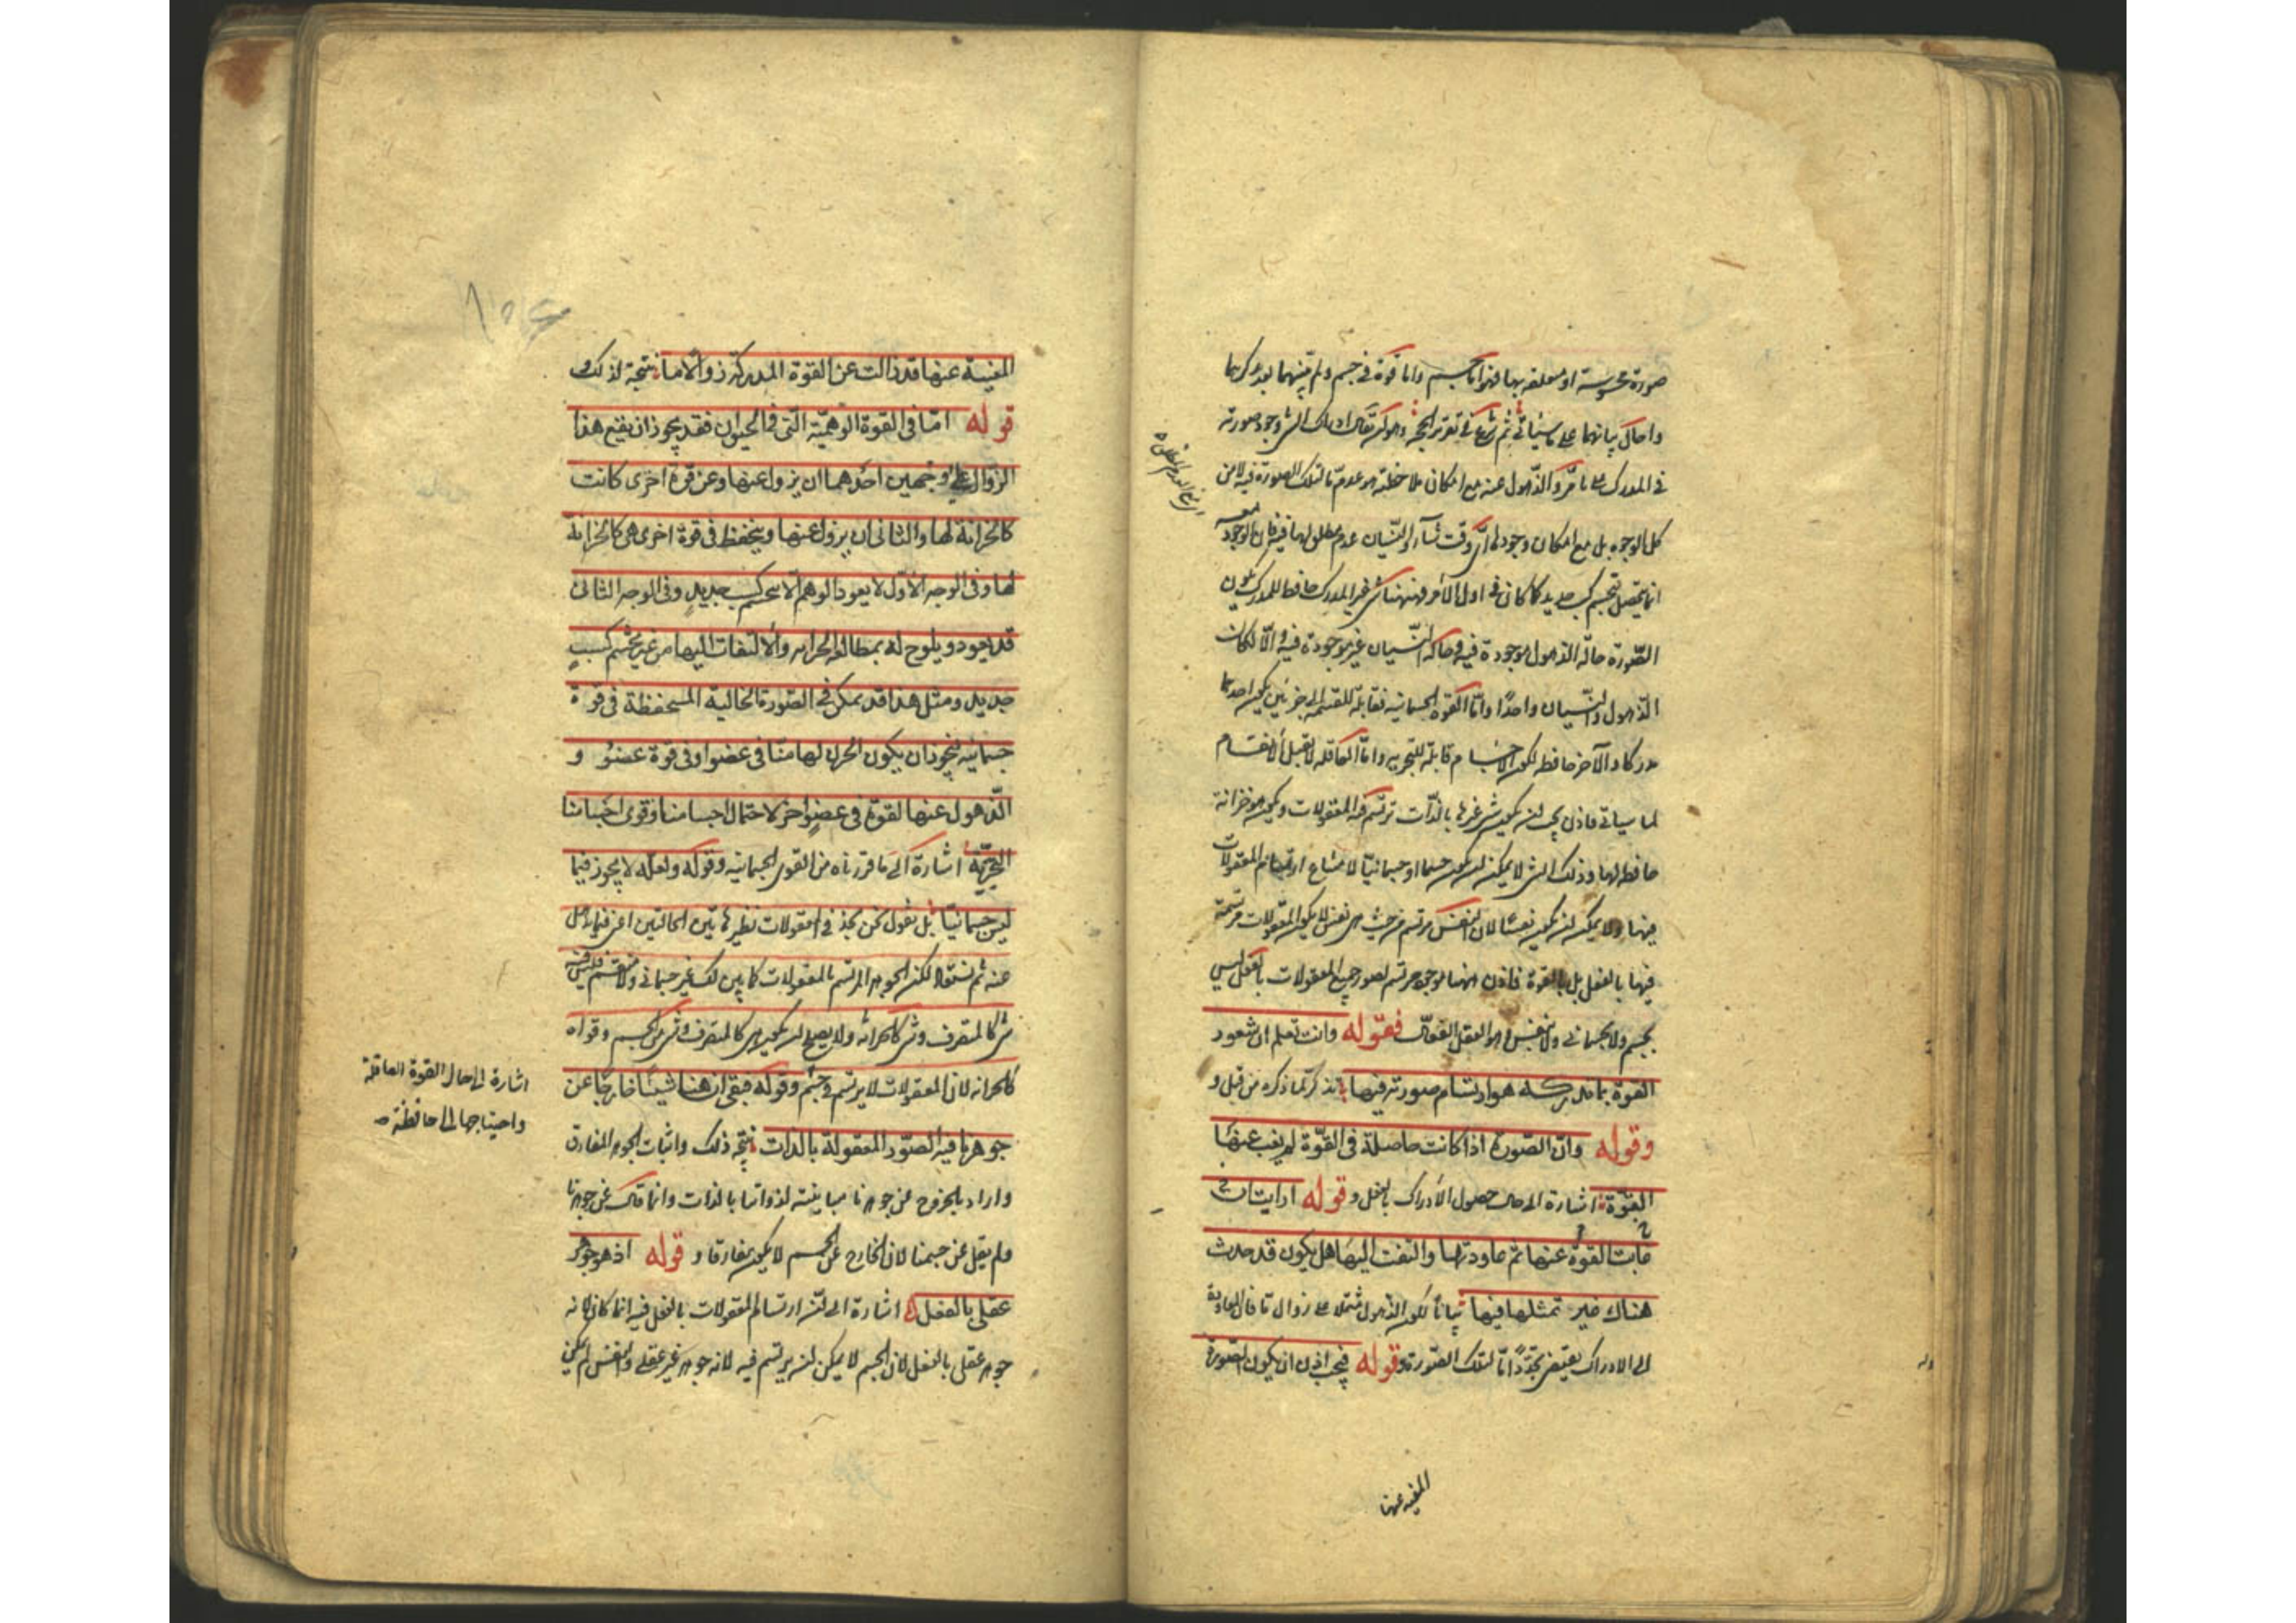 صورة محسوسة او متعلقة بها فهو اما جسم واما قوة في جسم ولم يبينهما بعد لكنهما
واحال بيانهما على ما سيأتي ثم شرع في تقرير الحجة وهو ان يقال ادراك الشئ وجود صورته
في المدرك على ما مر والذهول عنه مع امكان ملاحظته هو عدم ما لتلك الصورة فيه لا من
كل الوجوه بل مع امكان وجودها اي وقت شاء والنسيان عدم مطلق لها فيه فان الوجود معه
انما يحصل بتجشم كسب جديد كما كان في اول الأمر فههنا شئ غير المدرك حافظ للمدرك يكون
الصورة حالة الذهول موجودة فيه وحالة النسيان غير موجودة فيه والا لكان
الذهول والنسيان واحدا واما القوة الجسمانية فقابلة للقسمة الى جزئين يكون احدهما
مدركا والآخر حافظا لكون الاجسام قابلة للتجزية واما العاقلة لا تقبل الانقسام
لما سيأتي فاذن يجب ان يكون شئ غيرها بالذات ترتسم فيه المعقولات ويكون هو خزانة
حافظة لها وذلك الشئ لا يمكن ان يكون جسما او جسمانيا لامتناع ارتسام المعقولات
فيها ولا يمكن ان يكون نفسا لان النفس من حيث هي نفس لا يكون المعقولات مرتسمة
فيها بالفعل بل بالقوة فاذن ههنا موجود مرتسم بصور جميع المعقولات بالفعل ليس
بجسم ولا جسماني ولا بنفس وهو العقل الفعال فقوله وانت تعلم ان شعور
القوة بما تدركه هو ارتسام صورته فيها تذكر لما ذكره من قبل و
وقوله وان الصورة اذا كانت حاصلة في القوة لم يغب عنها
القوة اشارة الى حال حصول الأدراك بالفعل وقوله ارايت ان
غابت القوة عنها ثم عاودتها والتفت اليها هل يكون قد حدث
هناك غير تمثلها فيها بيان لكون الذهول مشتملا على زوال ما فان المعاودة
الى الادراك يقتضي تجددا ما لتلك الصورة وقوله فيجب اذن ان يكون الصورة
المغيبة عنها
المغيبة عنها قد زالت عن القوة المدركة زوالا ما نتيجة لذلك و
قوله اما في القوة الوهمية التي في الحيوان فقد يجوز ان يقع هذا
الزوال على وجهين احدهما ان يزول عنها وعن قوة اخرى كانت
كالخزانة لها والثاني ان يزول عنها وينحفظ في قوة اخرى هي كالخزانة
لها وفي الوجه الأول لا يعود للوهم الا بتجشم كسب جديد وفي الوجه الثاني
قد يعود ويلوح له بمطالعة الخزانة والالتفات اليها من غير تجشم كسب
جديد ومثل هذا قد يمكن في الصورة الخيالية المستحفظة في قوة
جسمانية فيجوز ان يكون الخزن لها منا في عضو او في قوة عضو و
الذهول عنها لقوة في عضو آخر لاحتمال اجسامنا وقوى اجسامنا
التجزية اشارة الى ما قررناه من القوى الجسمانية وقوله ولعله لا يجوز فيما
ليس جسمانيا بل نقول نحن نجد في المعقولات نظير هاتين الحالتين اعني فيما يذهل
عنه ثم نستعاد لكن الجوهر المرتسم بالمعقولات كما يبين لك غير جسماني ولا منقسم فليس فيه
شئ كالمتصرف وشئ كالخزانة ولا يصلح ان يكون هو كالمتصرف وشئ من الجسم وقواه
كالخزانة لان المعقولات لا يرتسم في جسم وقوله فبقى ان ههنا شيئا خارجا عن
جوهرنا فيه الصور المعقولة بالذات نتيجة ذلك واثبات الجوهر المفارق
واراد بالخروج عن جوهرنا مباينته لذواتنا بالذات وانما قال عن جوهرنا
ولم يقل عن جسمنا لان الخارج عن الجسم لا يكون مفارقا و قوله اذ هو جوهر
عقلي بالفعل اشارة الى ان ارتسام المعقولات بالفعل فيه انما كان لانه
جوهر عقلي بالفعل لان الجسم لا يمكن ان يرتسم فيه لانه جوهر غير عقلي والنفس لم يكن
اشارة الى حال القوة العاقلة
واحتياجها الى حافظة